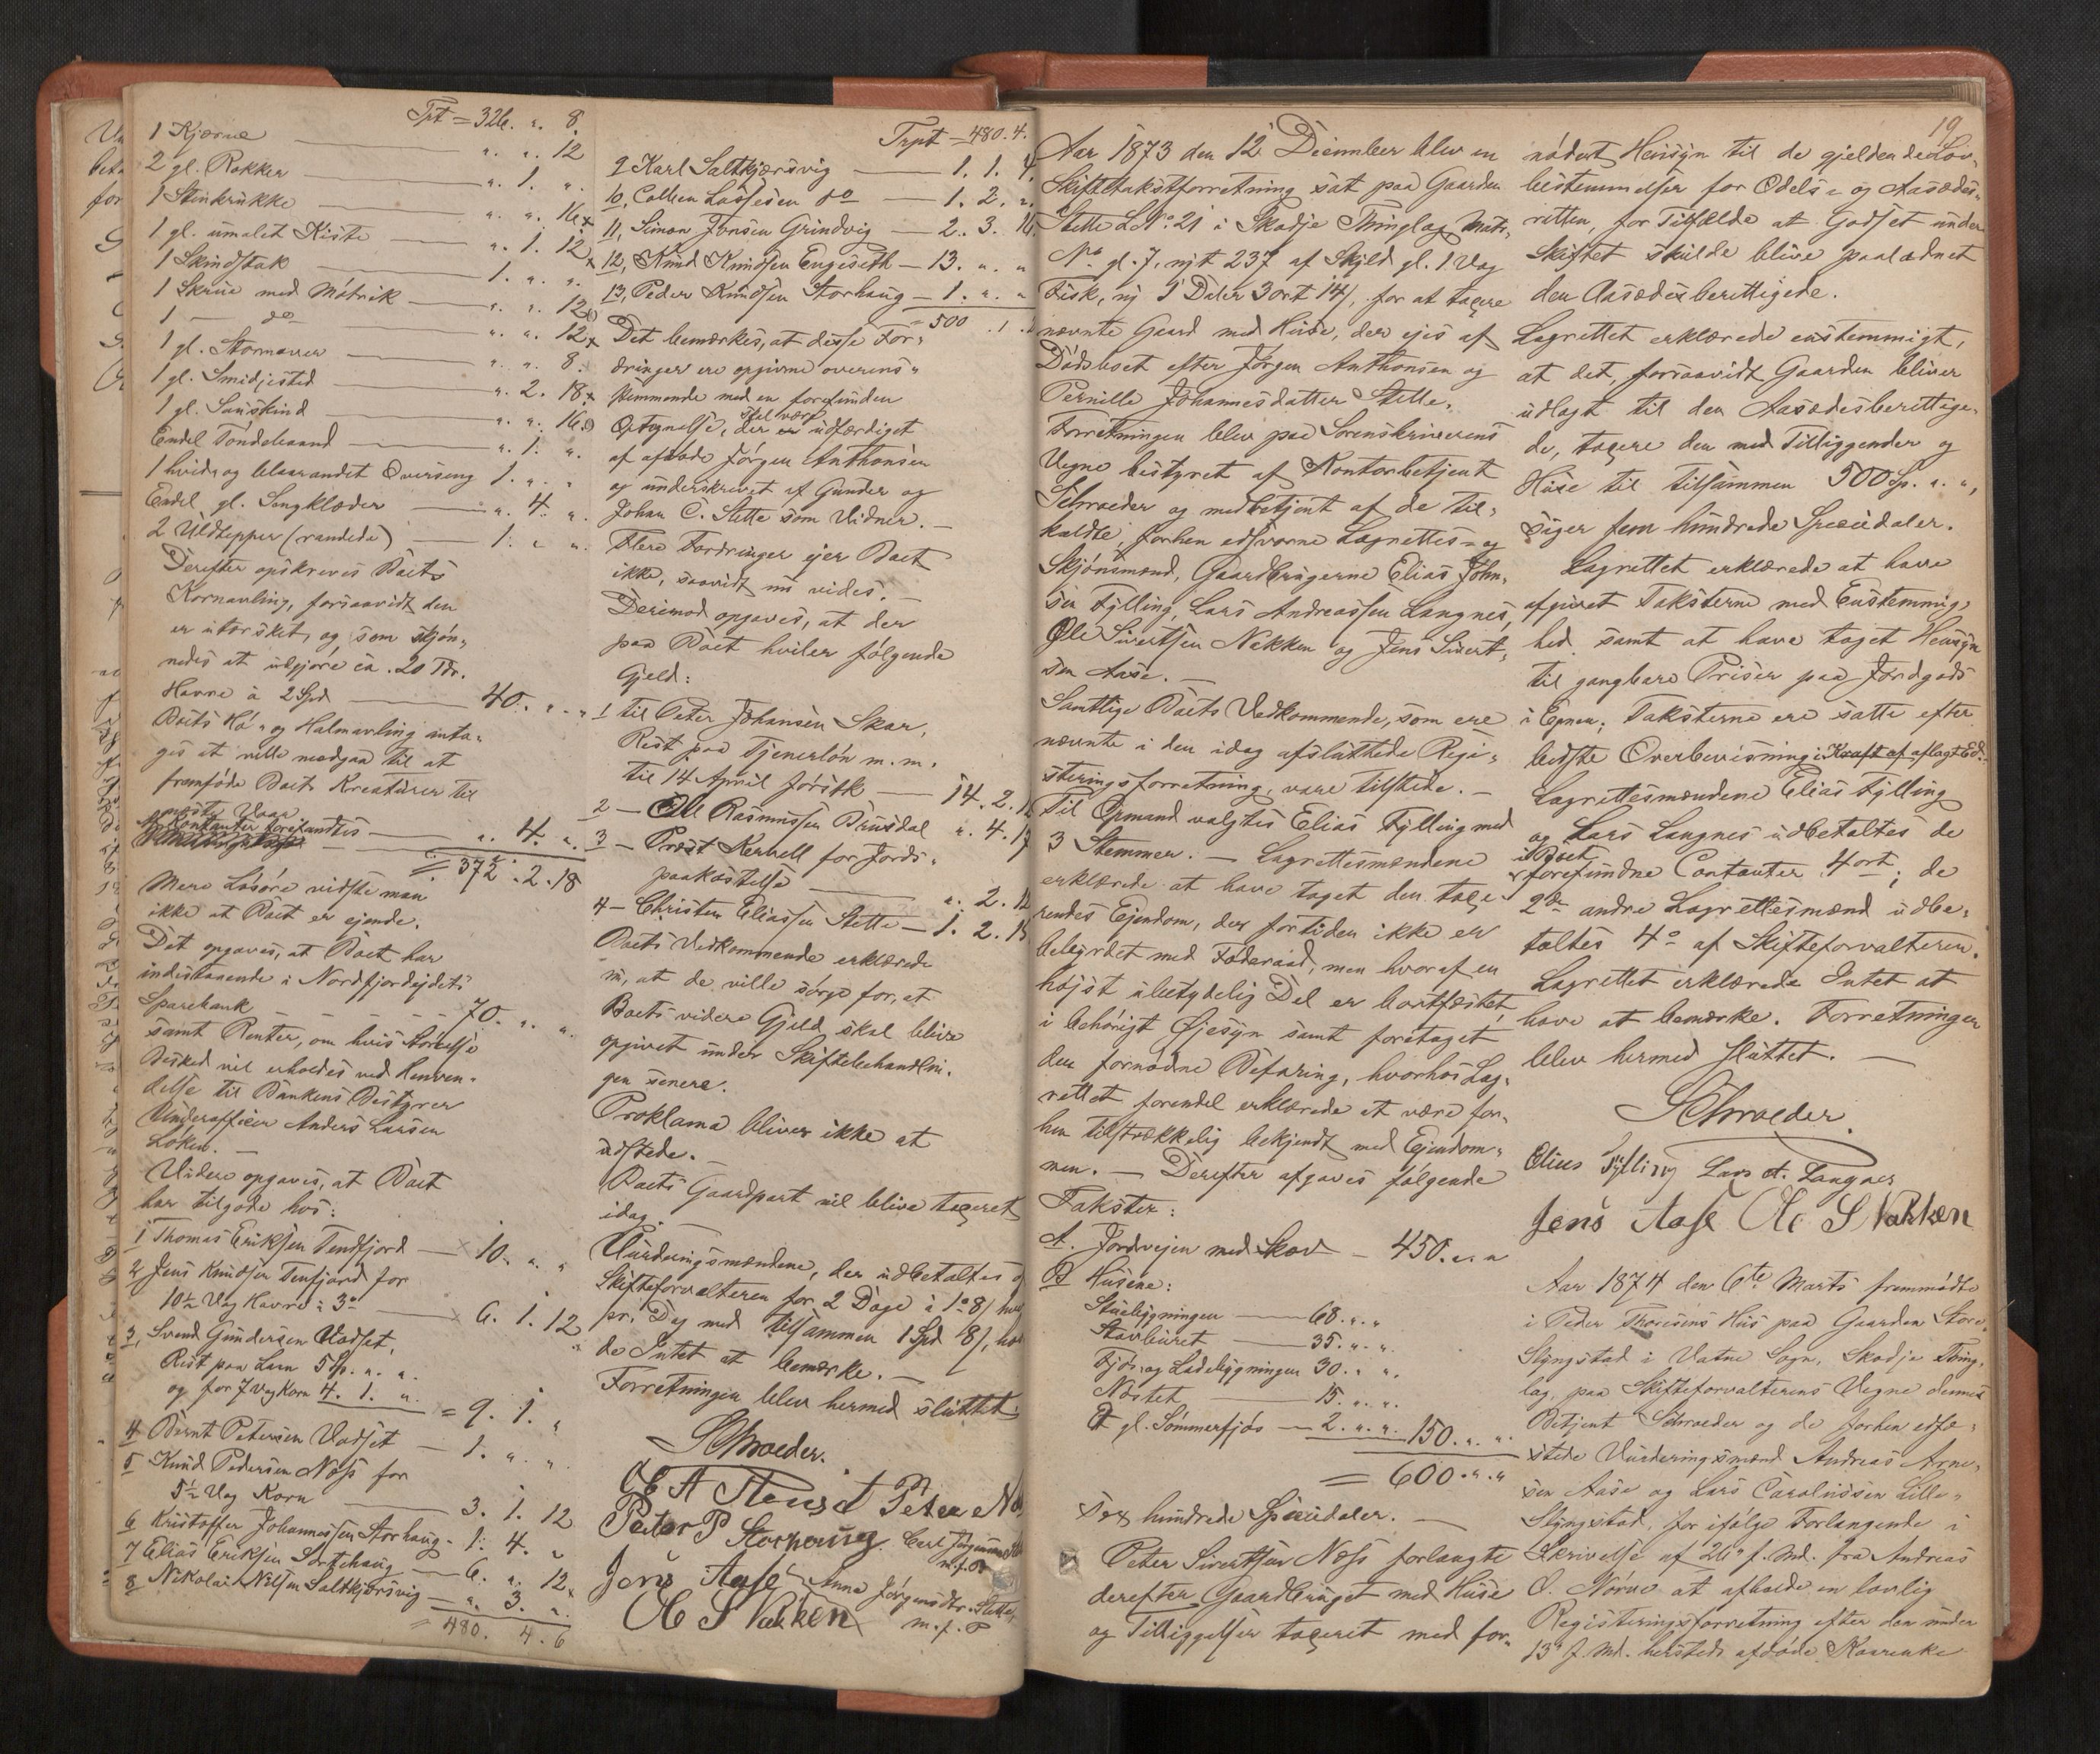 Tpt = 326. ". 8.
1 Kjærne — ". ". 12
2 gl. Rokker — ". 1. ".
1 Stenkrukke — ". ". 16
1 gl. umalet Kiste — ". 1. 12
1 Skindstak — 1. ". ".
1 Skrue med Møtrik — ". ". 12
1 — do — ". ". 12
1 gl. — ". ". 8.
1 gl. Smidjested — ". 2. 18
1 gl. Sauskind — ". ". 16
Endel Tøndebaand — ". 1. ".
1 hvid og blaarandet Overseng 1. ". ".
Endel gl. Sengklæder — ". 4. ".
2 Uldtepper (randede) — 1. ". ".
Derefter opskreves Boets
Kornavling, forsaavidt den
er utørsket, og som skjøn-
nedes at udgjøre ca. 20 Tdr.
Havre à 2 Spd — 40. ". ".
Boets Hø- og Halmavling anto-
ges at ville medgaa til at
fremføde Boets Kreaturer til
næste Vaar
Kontanter forefandtes — ". 4. ".
= 372. 2. 18
Mere Løsøre vidste man
ikke at Boet er ejende.
Det opgaves, at Boet har
indestaaende i Nordfjordejdets
Sparebank — 70. ". ".
samt Renter, om hvis Størrelse
Besked vil erholdes ved Henven-
delse til Bankens Bestyrer
Underofficer Anders Larsen
Løken. —
Videre opgaves, at Boet
har tilgode hos:
1 Thomas Eriksen Tendfjord — 10. ". ".
2 Jens Knudsen Tenfjord for
10½ Vog Havre à 3o — 6. 1. 12
3, Svend Gundersen Vadset,
Rest paa Laan 5 Sp. ". ".
og for 7 Vog Korn 4. 1. ". = 9. 1. ".
4 Bernt Petersen Vadset — 1. ". ".
5 Knud Pedersen Næss for
5½ Vog Korn — 3. 1. 12
6 Kristoffer Johannessen Storhaug — 1. 4. ".
7 Elias Eriksen Sortehaug — 6. ". 12
8 Nikolai Nilsen Saltkjærsvig — ". 3. ".
= 480. 4. 6
Trpt = 480. 4.
9 Karl Saltkjærsvig — 1. 1. 4.
10, Colben Lassesen do — 1. 2. ".
11, Simon Jonsen Grindvig — 2. 3. 16.
12, Knud Knudsen Engeseth — 13. ". "
13, Peder Knudsen Storhaug — 1. ". "
= 500. 1.
Det bemærkes, at disse For-
dringer ere opgivne overens-
stemmende med en forefunden
Optegnelse, der skal være udfærdiget
af afdøde Jørgen Anthonsen
og underskrevet af Gunder og
Johan C. Stette som Vidner. —
Flere Fordringer ejer Boet
ikke, saavidt nu vides. —
Derimod opgaves, at der
paa Boet hviler følgende
Gjeld:
1 til Peter Johansen Skar,
Rest paa Tjenerløn m. m.
til 14 April førstk — 14. 2. 12
2 — Ole Rasmussen Brusdal ". 4. 17
3 — Præst Kervell for Jords-
paakastelse — ". 2. 12
4 — Christen Eliassen Stette — 1. 2. 15
Boets Vedkommende erklærede
nu, at de ville sørge for, at
Boets videre Gjeld skal blive
opgivet under Skiftebehandlin-
gen senere.
Proklama bliver ikke at
udstede. —
Boets Gaardpart vil blive taxeret
idag. —
Vurderingsmændene, der udbetaltes af
Skifteforvalteren for 2 Dage à 1o 8/ hver
pr. Dag med tilsammen 1 Spd 8/, hav-
de Intet at bemærke. —
Forretningen blev hermed sluttet.
Schroeder.
Peter P Storhaug.
Jens Aase Anna Jørgensdtr. Stette,
Ole S Nakken m. f. P
19
Aar 1873 den 12. December blev en
Skiftetakstforretning sat paa Gaarden
Stette L.No. 21 i Skodje Thinglag Matr.
No gl. 7, nyt 237 af Skyld gl. 1 Vog
Fisk, ny 1 Daler 3 ort 14/, for at taxere
nævnte Gaard med Huse, der ejes af
Dødsboet efter Jørgen Anthonsen og
Pernille Johannesdatter Stette.
Forretningen blev paa Sorenskriverens
Vegne bestyret af Kontorbetjent
Schroeder og medbetjent af de til-
kaldte, forhen edsvorne Lagrettes- og
Skjønsmænd, Gaardbrugerne Elias John-
sen Fylling, Lars Andreassen Langnes,
Ole Sivertsen Nakken og Jens Sivert-
sen Aase. —
Samtlige Boets Vedkommende, som ere
nævnte i den idag afsluttede Regi-
streringsforretning, vare tilstede. —
Til Opmand valgtes Elias Fylling med
3 Stemmer. — Lagrettesmændene
erklærede at have taget den taxe-
rendes Ejendom, der fortiden ikke er
bebyrdet med Føderaad, men hvoraf en
højst ubetydelig Del er bortfæstet,
i behørigt Øjesyn samt foretaget
den fornødne Befaring, hvorhos Lag-
rettet forendel erklærede at være for-
hen tilstrækkelig bekjendt med Ejendom-
men. — Derefter afgaves følgende
Takster:
A. Jordvejen med Skov — 450. ". "
B Husene:
Stuebygningen — 68. ". "
Stavburet — 35. ". ".
Fjøs- og Ladebygningen 30. ". ".
Nøstet — 15. ". ".
Et gl. Sommerfjøs — 2. ". ". 150. ". ".
= 600. ". "
Sex hundrede Speciedaler. —
Peter Sivertsen Næss forlangte
derefter Gaardbruget med Huse
og Tilliggelser taxeret med for-
nødent Hensyn til de gjeldende Lov-
bestemmelser for Odels- og Aasædes-
retten, for Tilfælde at Godset under
Skiftet skulde blive paaladnet
den Aasædesberettigede.
Lagrettet erklærede enstemmigt,
at det, forsaavidt Gaarden bliver
udlagt til den Aasædesberettige-
de, taxere den med Tilliggender og
Huse til tilsammen 500 Sp. ". ",
siger fem hundrede Speciedaler.
Lagrettet erklærede at have
afgivet Taksterne med Enstemmig-
hed samt at have taget Hensyn
til gangbare Priser paa Jordgods
i Egnen; Taksterne ere satte efter
bedste Overbevisning i Kraft af aflagt Ed. —
Lagrettesmændene Elias Fylling
og Lars Langnes udbetaltes de
i Boet
forefundne Contanter 4 ort; de
2de andre Lagrettesmænd udbe-
taltes 4o af Skifteforvalteren.
Lagrettet erklærede Intet at
have at bemærke. Forretningen
blev hermed sluttet. —
Schroeder.
Elias Fylling Lars A. Langnes
Jens Aase Ole S Nakken
Aar 1874 den 6te Marts fremmødte
i Peder Thoresens Hus paa Gaarden Store-
Slyngstad i Vatne Sogn, Skodje Thing-
lag, paa Skifteforvalterens Vegne dennes
Betjent Schroeder og de forhen edfæ-
stede Vurderingsmænd Andreas Arne-
sen Aase og Lars Carolussen Lille-
Slyngstad, for ifølge Forlangende i
Skrivelse af 26' f. Md. fra Andreas
O. Nørve at afholde en lovlig
Registreringsforretning efter den under
13' f. Md. hersteds afdøde